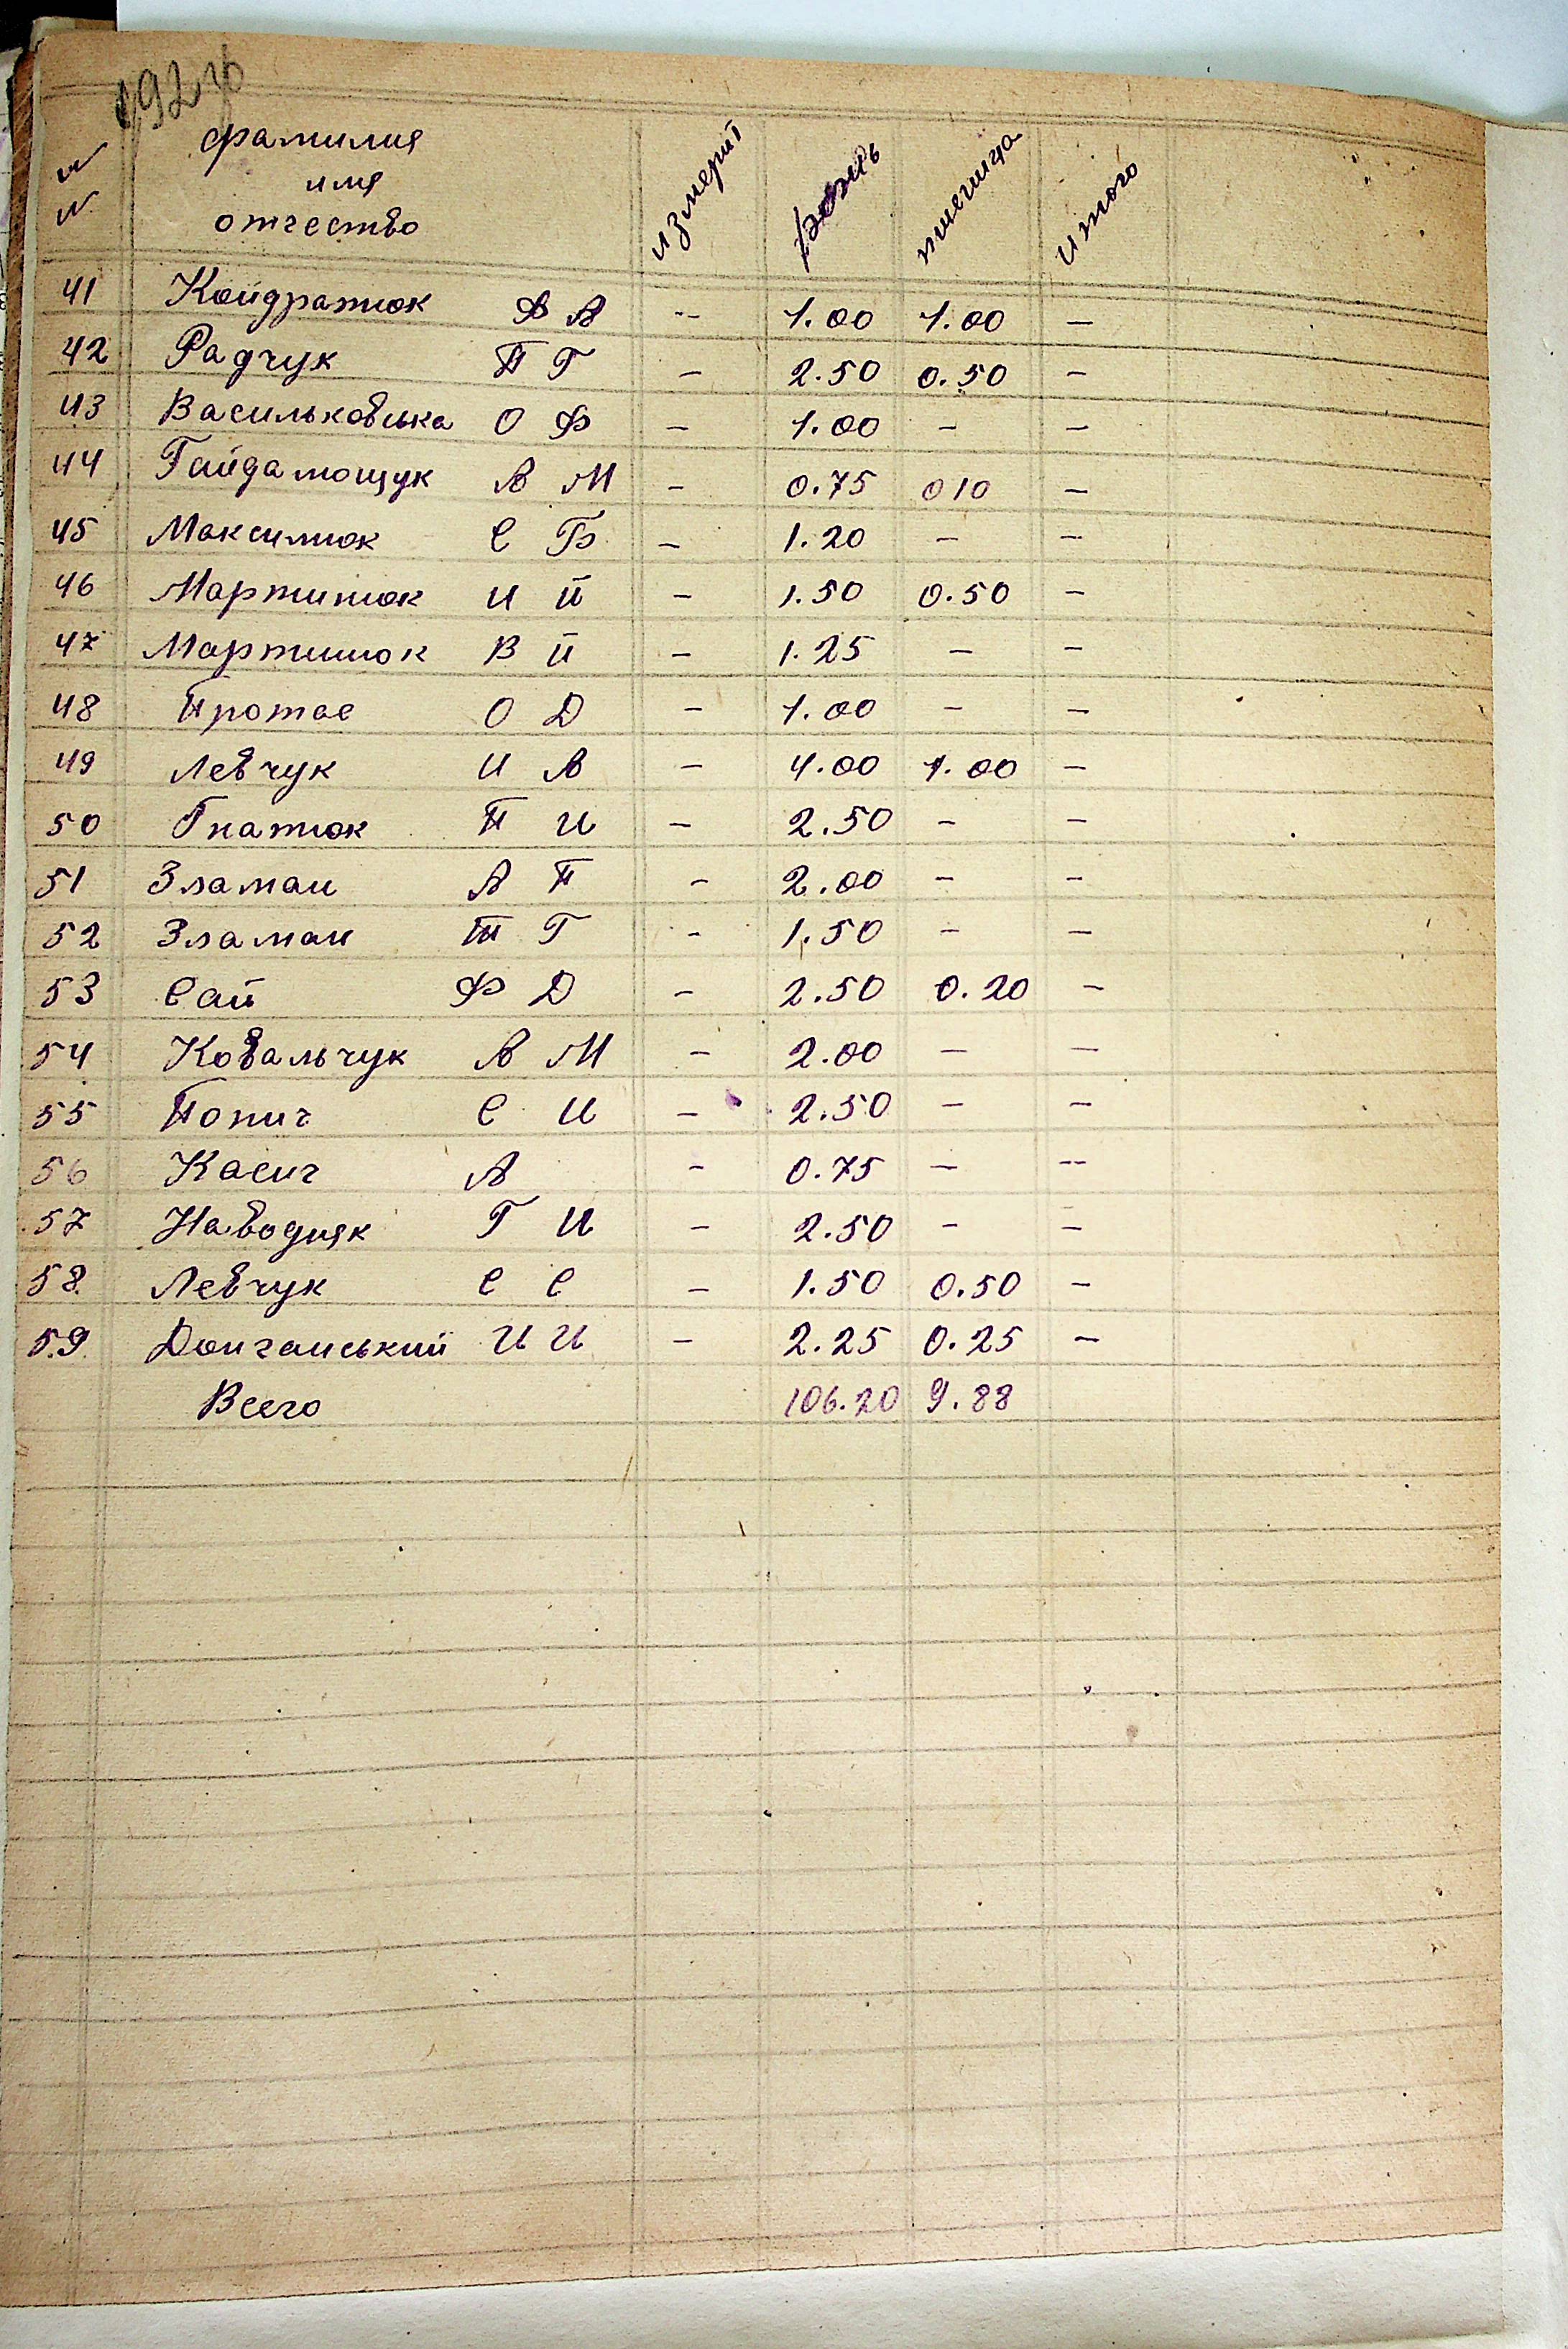 192
№ фамилия имя отчество измерит рожь пшеница итого
41 Кондратюк А А -- 1.00 1.00 -
42 Радчук П Г - 2.50 0.50 -
43 Васильковська О Ф - 1.00 - -
44 Гайдамощук А М - 0.75 0 10 -
45 Максимюк С Б - 1.20 - -
46 Мартинюк И Й - 1.50 0.50 -
47 Мартинюк В Й - 1.25 - -
48 Протас О Д - 1.00 - -
49 Левчук И А - 4.00 1.00 -
50 Гнатюк П И - 2.50 - -
51 Зламан А П - 2.00 - -
52 Зламан Т Г - 1.50 - -
53 Сай Ф Д - 2.50 0.20 -
54 Ковальчук А М - 2.00 - -
55 Попич С И - 2.50 - -
56 Касич А - 0.75 - --
57 Наводняк Г И - 2.50 - -
58. Левчук С С - 1.50 0.50 -
59. Дончанський И И - 2.25 0.25 -
Всего 106.20 9.88